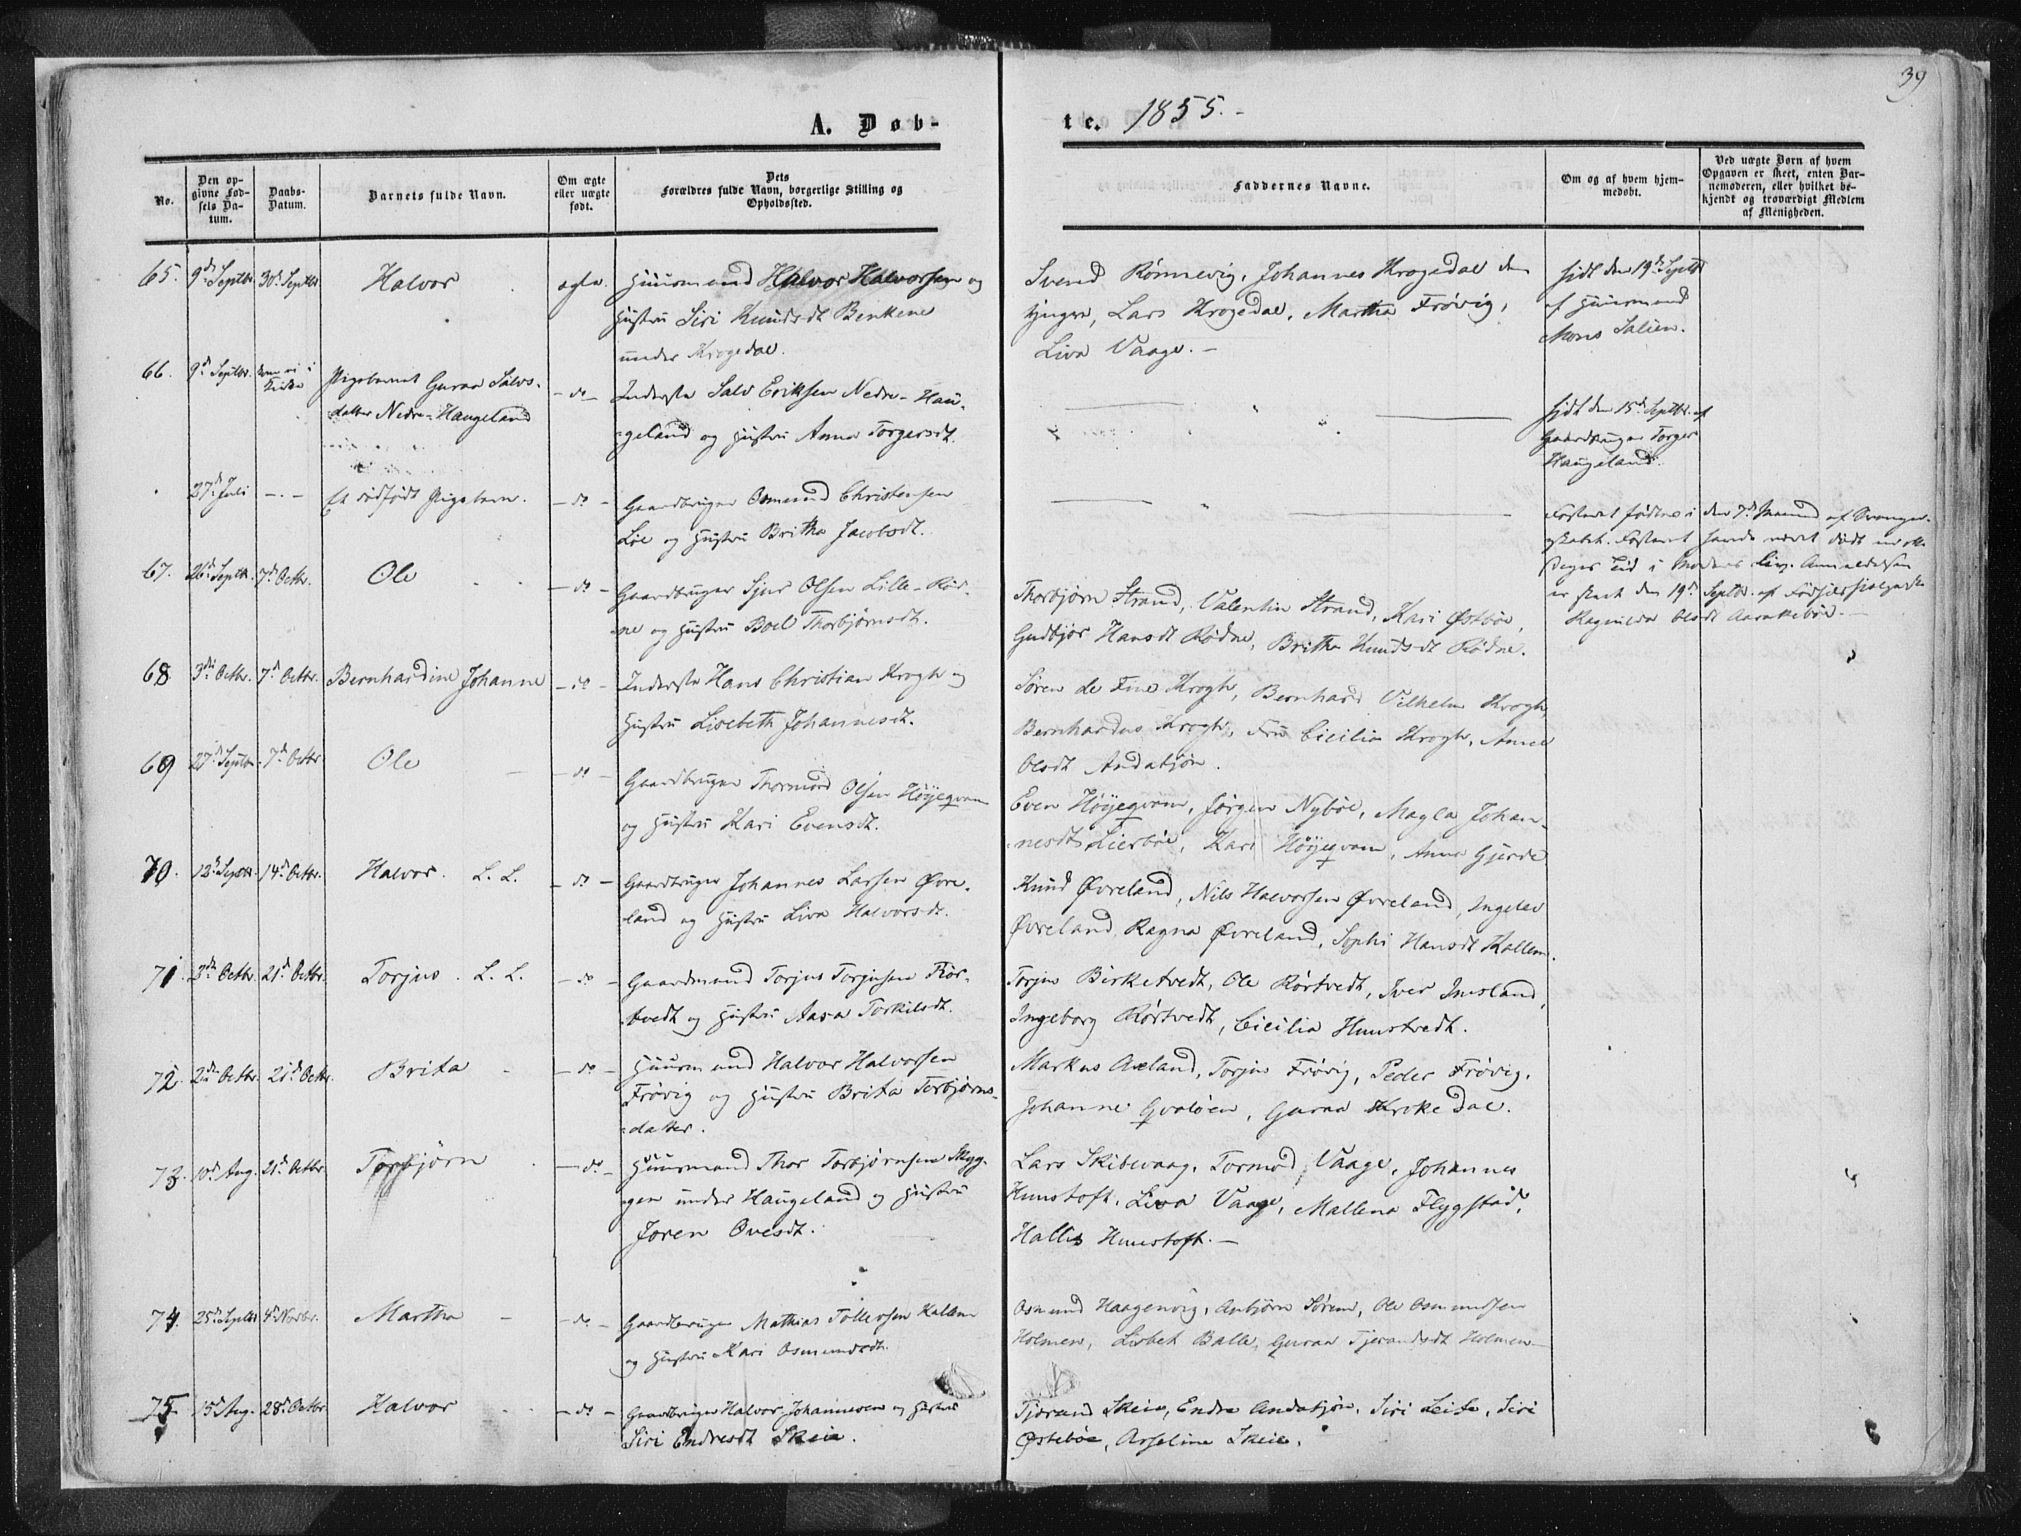 39
A. Døb-
te. 1855.-
No.
Den op-
givne Fød-
sels Da-
tum.
Daabs-
Datum.
Barnets fulde Navn.
Om ægte
eller uægte
født.
Dets
Forældres fulde Navn, borgerlige Stilling og
Opholdssted.
Faddernes Navne.
Om og af hvem hjem-
medøbt.
Ved uægte Børn af hvem
Opgaven er skeet, enten Bar-
nemoderen, eller hvilket be-
kjendt og troværdigt Medlem
af Menigheden.
65. 9de Septbr. 30te Septbr Halvor ægte. Huusmand Halvor Halvorsen og
Hustru Siri Knudsdt Benkene
under Krogedal.
Svend Rønnevig, Johannes Krogedal den
yngre, Lars Krogedal, Martha Frøvig,
Liva Vaage. -
hjdt den 19de Septbr
af Huusmand
Mons Salien.
66. 9de Septbr. Pigebarnet Guraa Salvs-
datter Nedre-Haugeland
-do- Inderste Salv Eriksen Nedre-Hau-
geland og Hustru Anna Torgersdt.
hjdt den 15de Septbr. af
Gaardbruger Torger
Haugeland.
27de Juli -.- Et dødfødt Pigebarn. -do- Gaardbruger Osmund Christensen
Løe og Hustru Britha Jacobsdt.
Fosteret fødtes i den 7de Maaned af Svanger-
skabet. Fosteret havde været dødt en ...
Tid i Moders Liv. Anmeldelsen
er skeet den 19de Septbr. af
Ragnilda Olsdt Aarskebøe.-
67. 26de Septbr. 7de Octbr. Ole -do- Gaardbruger Sjur Olsen Lille-Rød-
ne og Hustru Boel Thorbjørnsdt.
Thorbjørn Strand, Valentin Strand, Kari Østbøe,
Gudbjør Hansdt Rødne, Britha Knudsdt Rødne.
68 3die Octbr. 7de Octbr. Bernhardine Johanne -do- Inderste Hans Christian Krogh og
Hustru Lisebeth Johannesdt.
Søren de Fine Krogh, Bernhard Vilhelm Krogh,
Bernhardus Krogh, Fru Cicilia Krogh, Anne
Olsdt Andabjøn.
69 27de Septbr 7de Octbr Ole -do- Gaardbruger Thormod Olsen Höyeqvam
og Hustru Kari Evensdt.
Even Höyeqvam, Jørgen Nybøe, Magla Johan-
nesdt Lierbøe, Kari Höyeqvam, Anna Gjerde
70. 12te Septbr. 14de Octbr. Halvor. L. L. -do- Gaardbruger Johannes Larsen Øvre-
land og Hustru Liva Halvorsdt.
Knud Øvreland, Nils Halvorsen Øvreland, Ingelev
Øvreland, Ragna Øvreland, Sophi Hansdt Kallem.
71. 3die Octbr. 21de Octbr. Torjus. L. L. -do- Gaardmand Torjus Torjusen Rør-
tvedt og Hustru Aasa Torkilsdt.
Torjus Birketvedt, Ole Rørtvedt, Iver Imsland,
Ingeborg Rørtvedt, Cicilia Hunstvedt.
72. 2den Octbr. 21de Octbr. Brita -do- Huusmand Halvor Halvorsen
Frøvig og Hustru Brita Torbjørns-
datter.
Markus Axland, Torjus Frøvig, Peder Frøvig,
Johanne Qvaløen, Guraa Krokedal.
73. 10de Aug. 21de Octbr. Torbjørn -do- Huusmand Thor Torbjørnsen Skyg-
gen under Haugeland og Hustru
Joren Ovesdt.
Lars Skibevaag, Tormod Vaage, Johannes
Hunstoft, Liva Vaage, Mallena Flygstad,
Hallis Hunstoft. -
74. 25de Septbr 4de Novbr. Martha -do- Gaardbruger Mathias Tollevsen Kallem
og Hustru Kari Osmundsdt.
Osmund Haagenvig, Anbjørn Sørem, Ole Osmundsen
Holmen, Lisbet Balle, Guraa Tjerandsdt Holmen
75. 15de Aug. 28de Octbr Halvor -do- Gaardbruger Halvor Johannesen og Hustru
Siri Endresdt Skeie.
Tjerand Skeie, Endre Andabjøn, Siri Leite, Siri
Østebøe, Arseline Skeie.